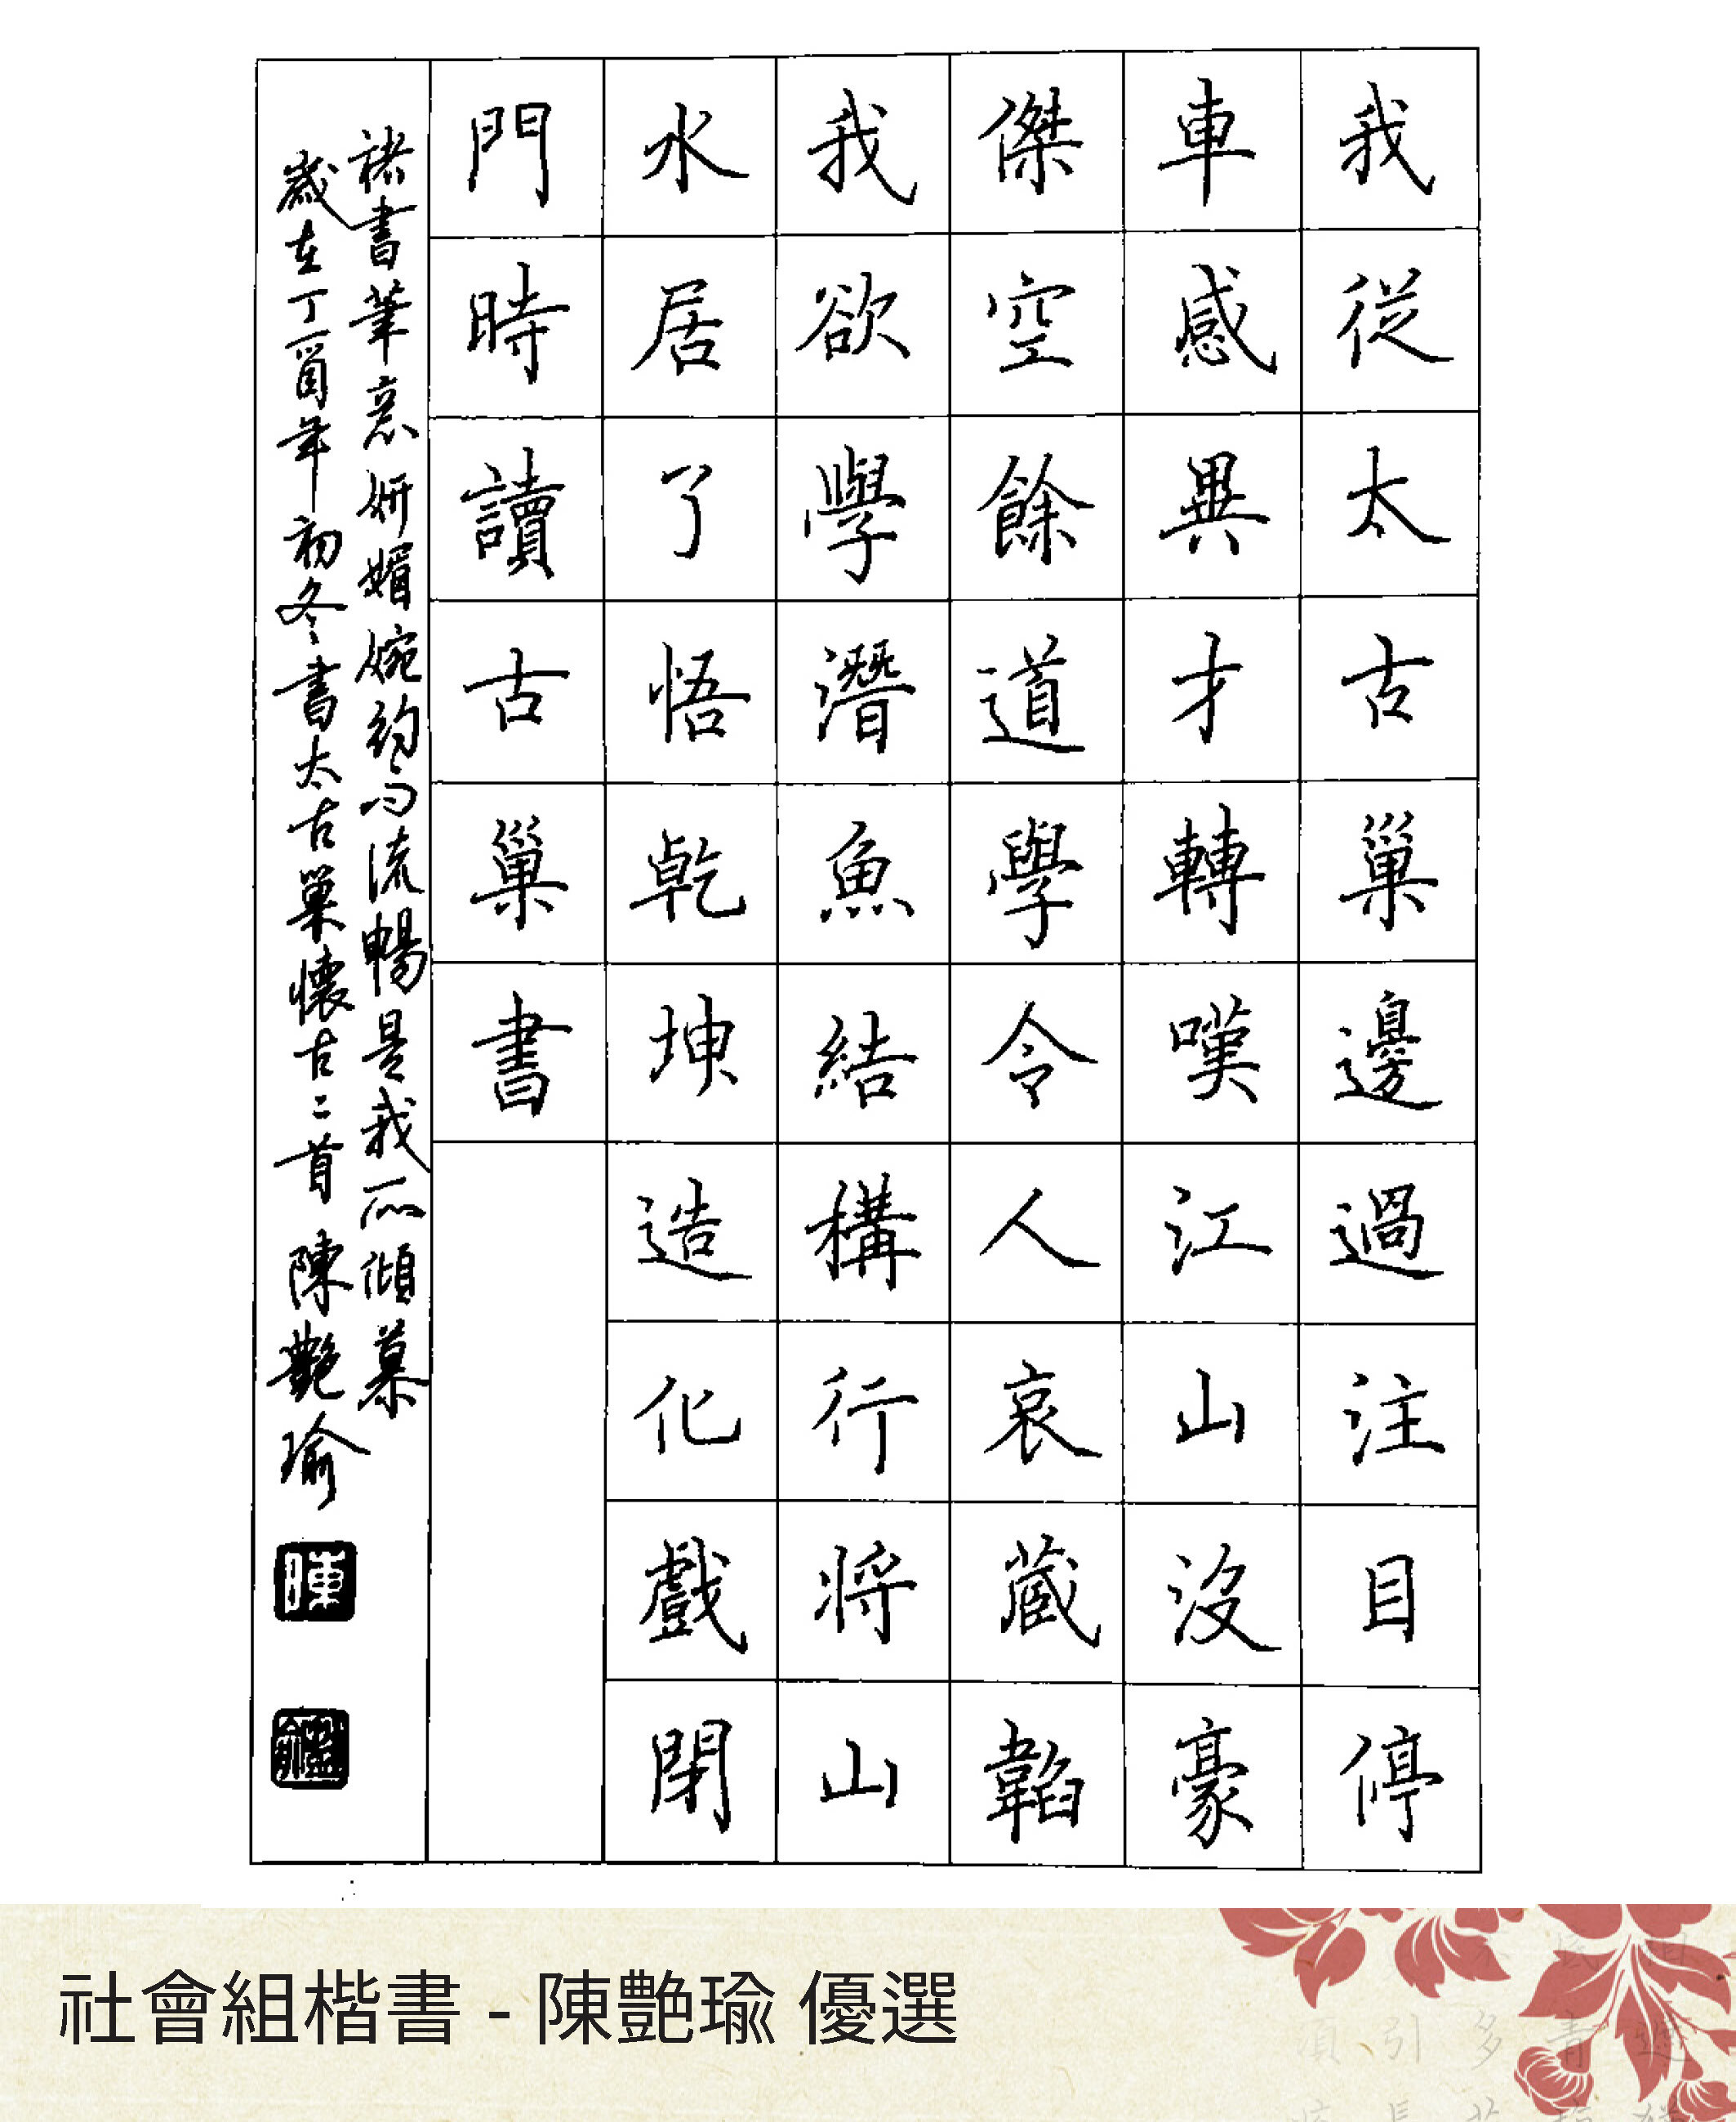 我從太古巢邊過注目停
車感異才轉嘆江山沒豪
傑空餘道學令人哀藏韜
我欲學潛魚結構行將山
水居了悟乾坤造化戲閉
門時讀古巢書
褚書筆意妍媚婉約而流暢是我所傾慕
歲在丁酉年初冬書太古巢懷古二首 陳艷瑜
社會組楷書 - 陳艷瑜 優選